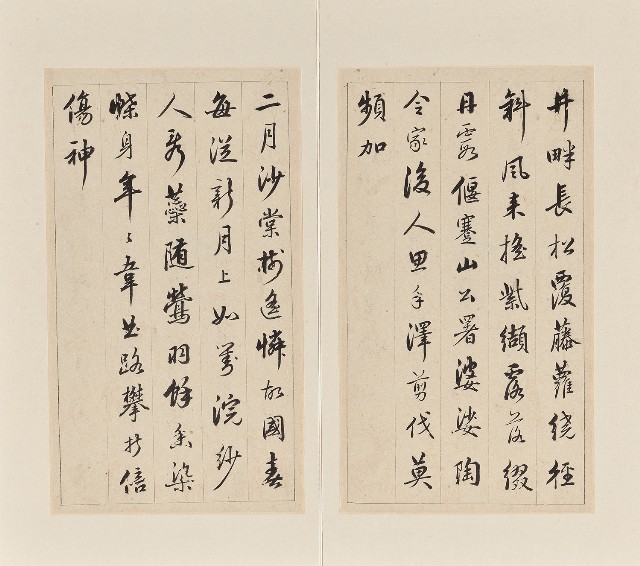 井畔長松覆藤蘿繞徑
斜風來搖紫纈露落綴
丹霞偃蹇山公署婆娑陶
令家後人思手澤剪伐莫
頻加
二月沙棠樹遙憐故國春
每從新月上如對浣紗
人蘂隨鶯羽餘香染
蝶身年々韋曲路攀折信
傷神